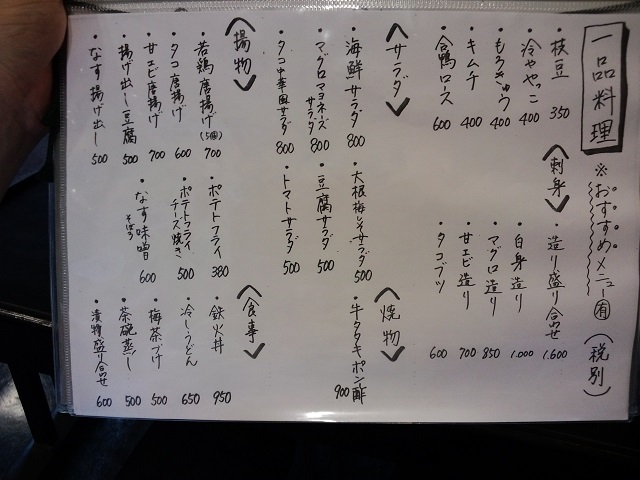 一品料理
※おすすめメニュー有
(税別)
・枝豆 350
・冷ややっこ 400
・もろきゅう 400
・キムチ 400
・合鴨ロース 600
<刺身>
・造り盛り合せ 1.600
・白身造り 1.000
・マグロ造り 850
・甘エビ造り 700
・タコブツ 600
<サラダ>
・海鮮サラダ 800
・マグロマヨネーズ
サラダ 800
・タコ中華風サラダ 800
・大根梅しそサラダ 500
・豆腐サラダ 500
・トマトサラダ 500
<焼物>
・牛タタキポン酢 900
<揚物>
・若鶏唐揚げ(5個) 700
・タコ唐揚げ 600
・甘エビ唐揚げ 700
・揚げ出し豆腐 500
・なす揚げ出し 500
・ポテトフライ 380
・ポテトフライ
チーズ焼き 500
・なす味噌
そぼろ 600
<食事>
・鉄火丼 950
・冷しうどん 650
・梅茶づけ 500
・茶碗蒸し 500
・漬物盛り合せ 600